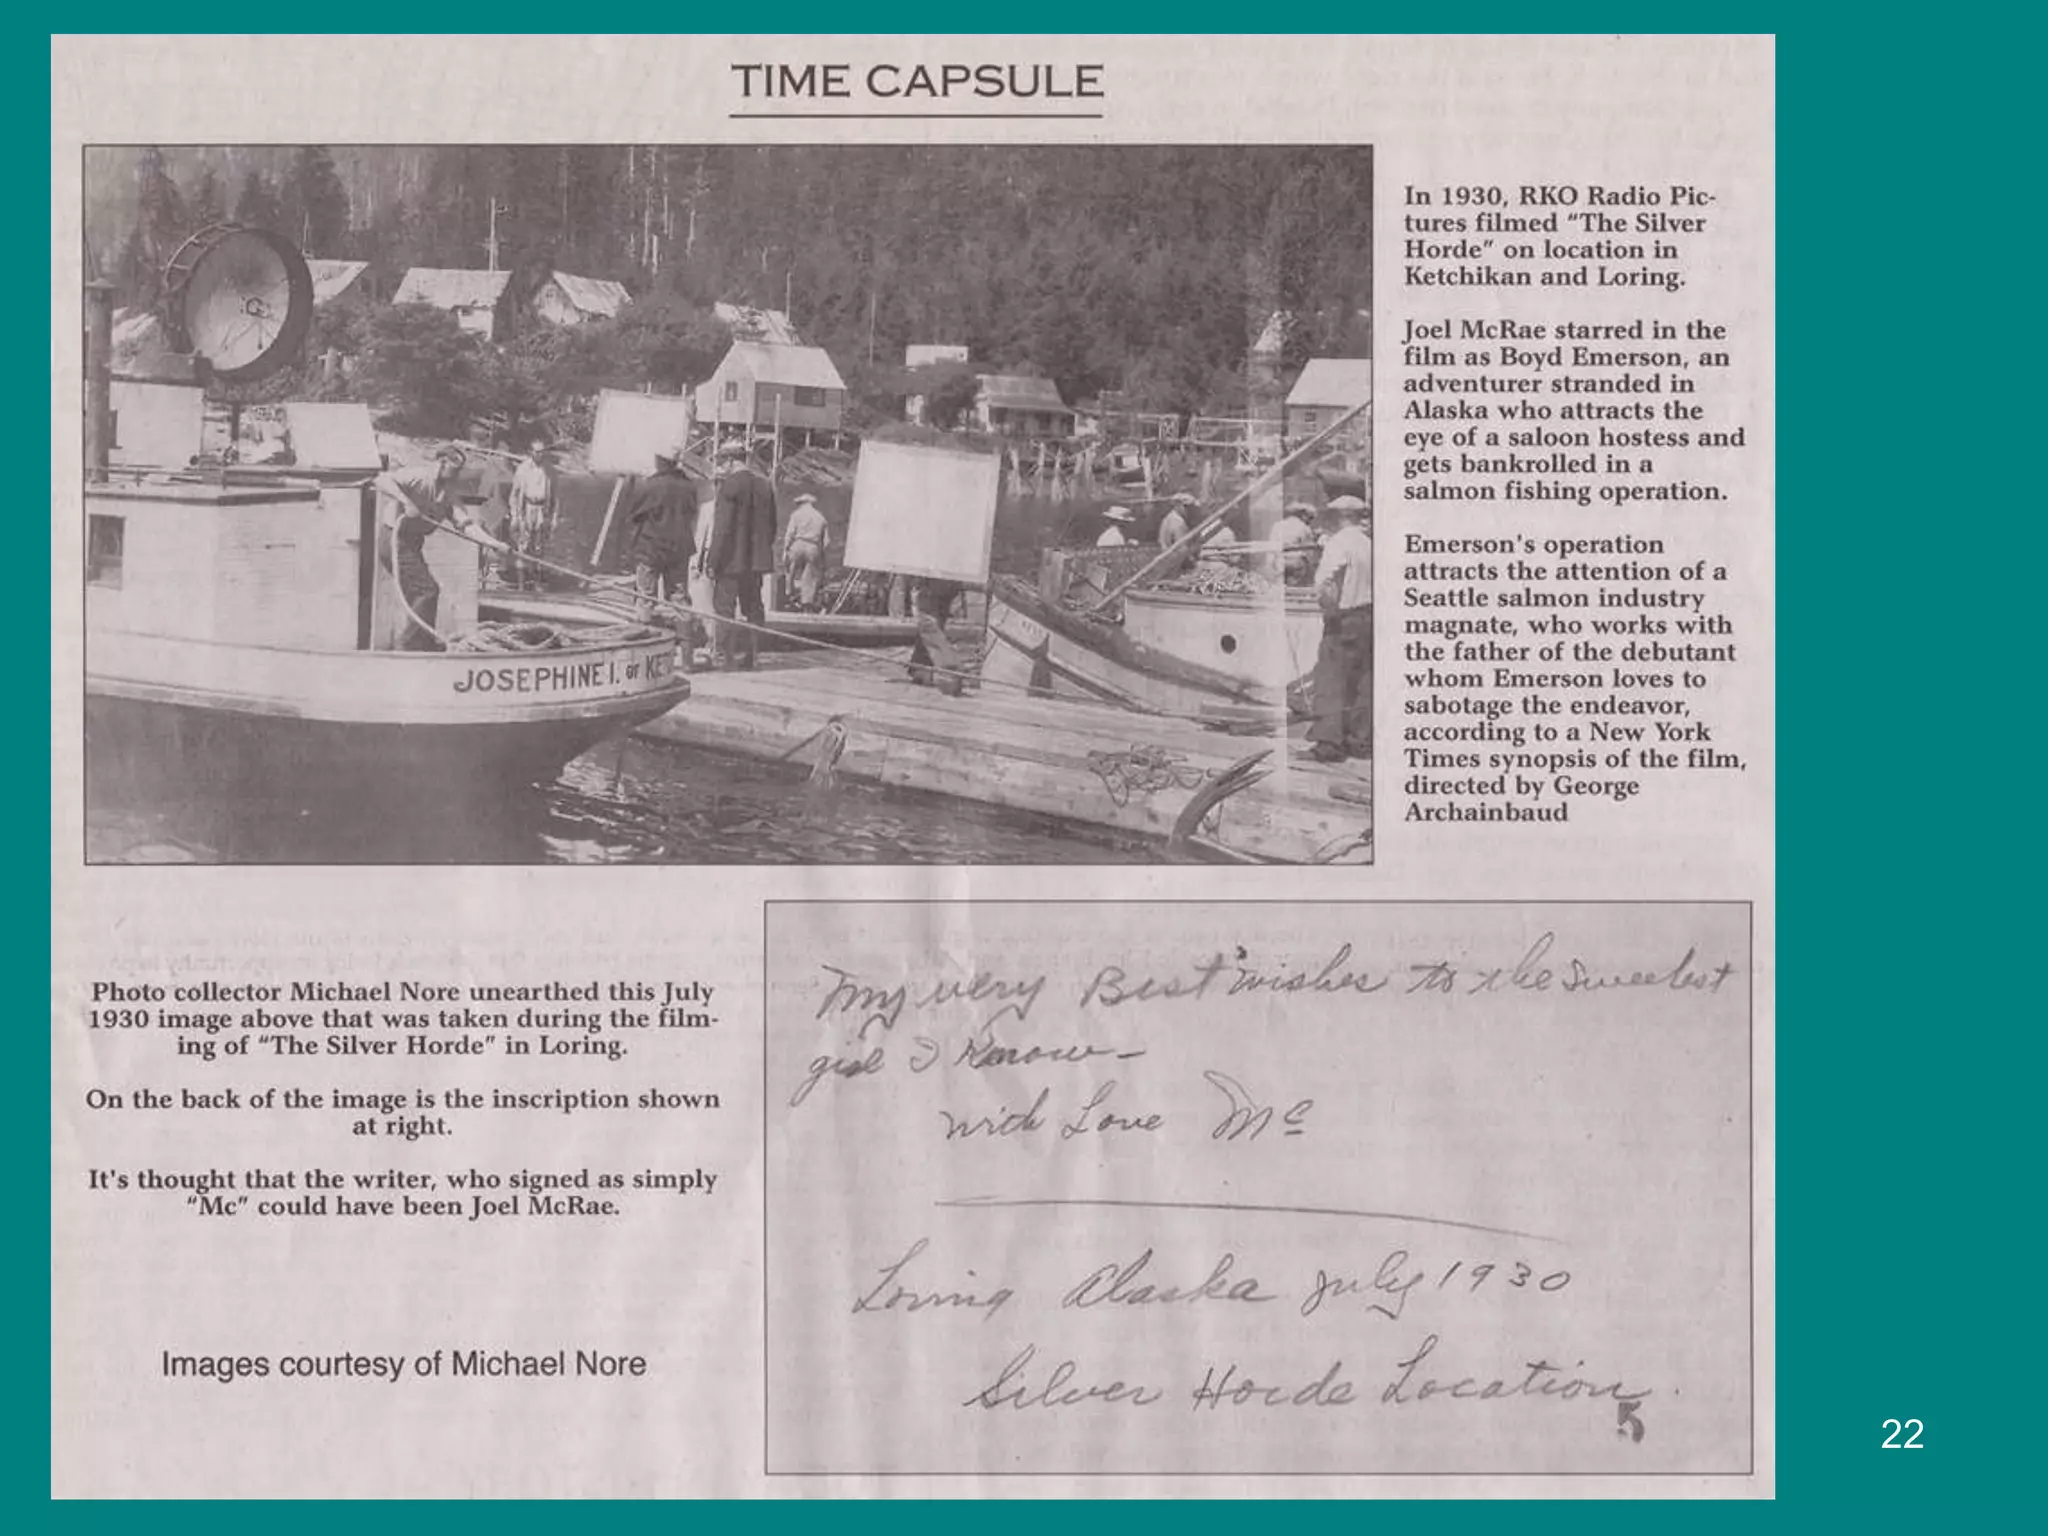 TIME CAPSULE
JOSEPHINE I. OF KE
In 1930, RKO Radio Pic-
tures filmed “The Silver
Horde” on location in
Ketchikan and Loring.
Joel McRae starred in the
film as Boyd Emerson, an
adventurer stranded in
Alaska who attracts the
eye of a saloon hostess and
gets bankrolled in a
salmon fishing operation.
Emerson's operation
attracts the attention of a
Seattle salmon industry
magnate, who works with
the father of the debutant
whom Emerson loves to
sabotage the endeavor,
according to a New York
Times synopsis of the film,
directed by George
Archainbaud
Photo collector Michael Nore unearthed this July
1930 image above that was taken during the film-
ing of “The Silver Horde” in Loring.
On the back of the image is the inscription shown
at right.
It's thought that the writer, who signed as simply
“Mc” could have been Joel McRae.
Images courtesy of Michael Nore
My very Best wishes to the Sweetest
girl I Know –
with Love Mc
Loring Alaska July 1930
Silver Horde Location
5
22